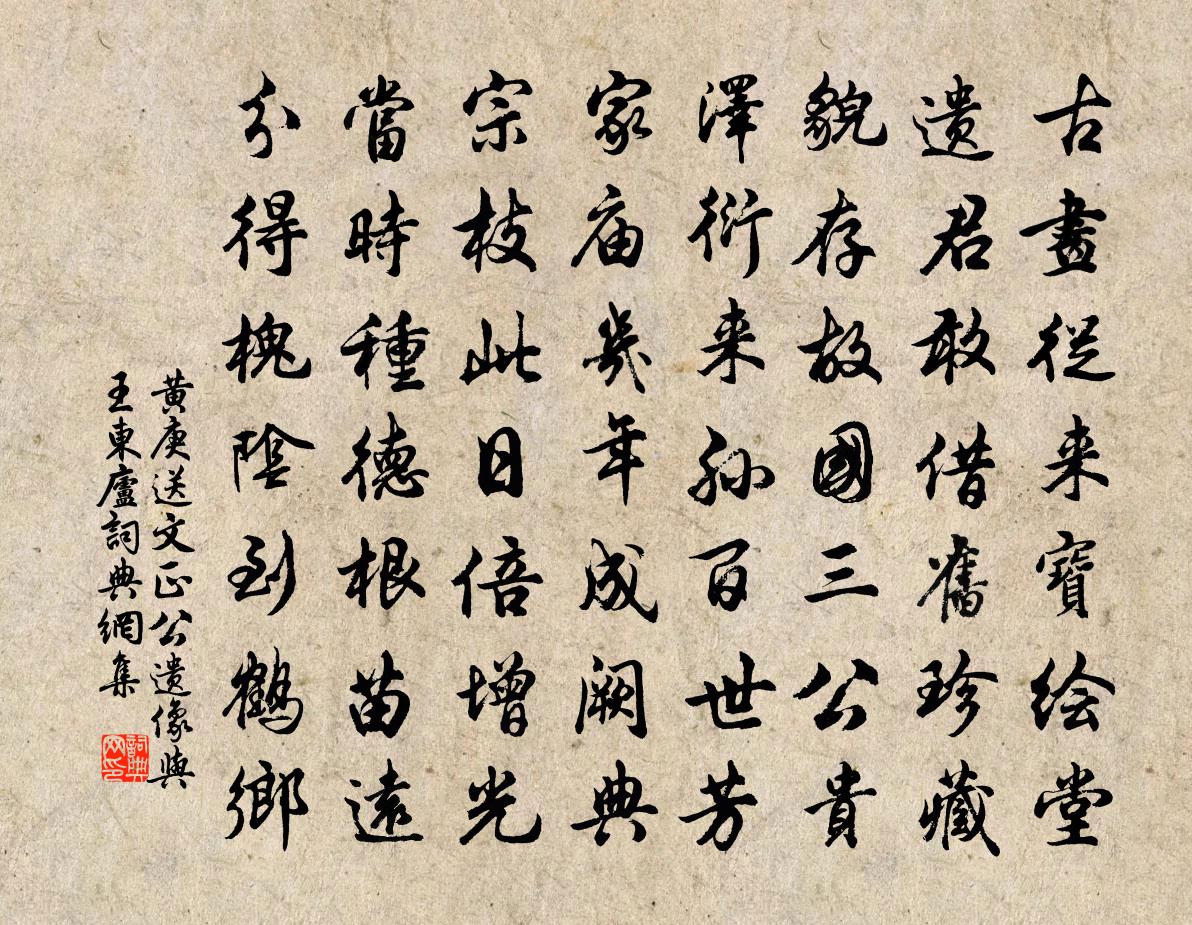 古畫從来寶绘堂
遗君敢借舊珍藏
貌存故國三公貴
澤衍来孙百世芳
家庙幾年成阙典
宗枝此日倍增光
當時種德根苗远
分得槐陰到鶴鄉
黄庚送文正公遗像與
王東廬詞典網集
詞典网印